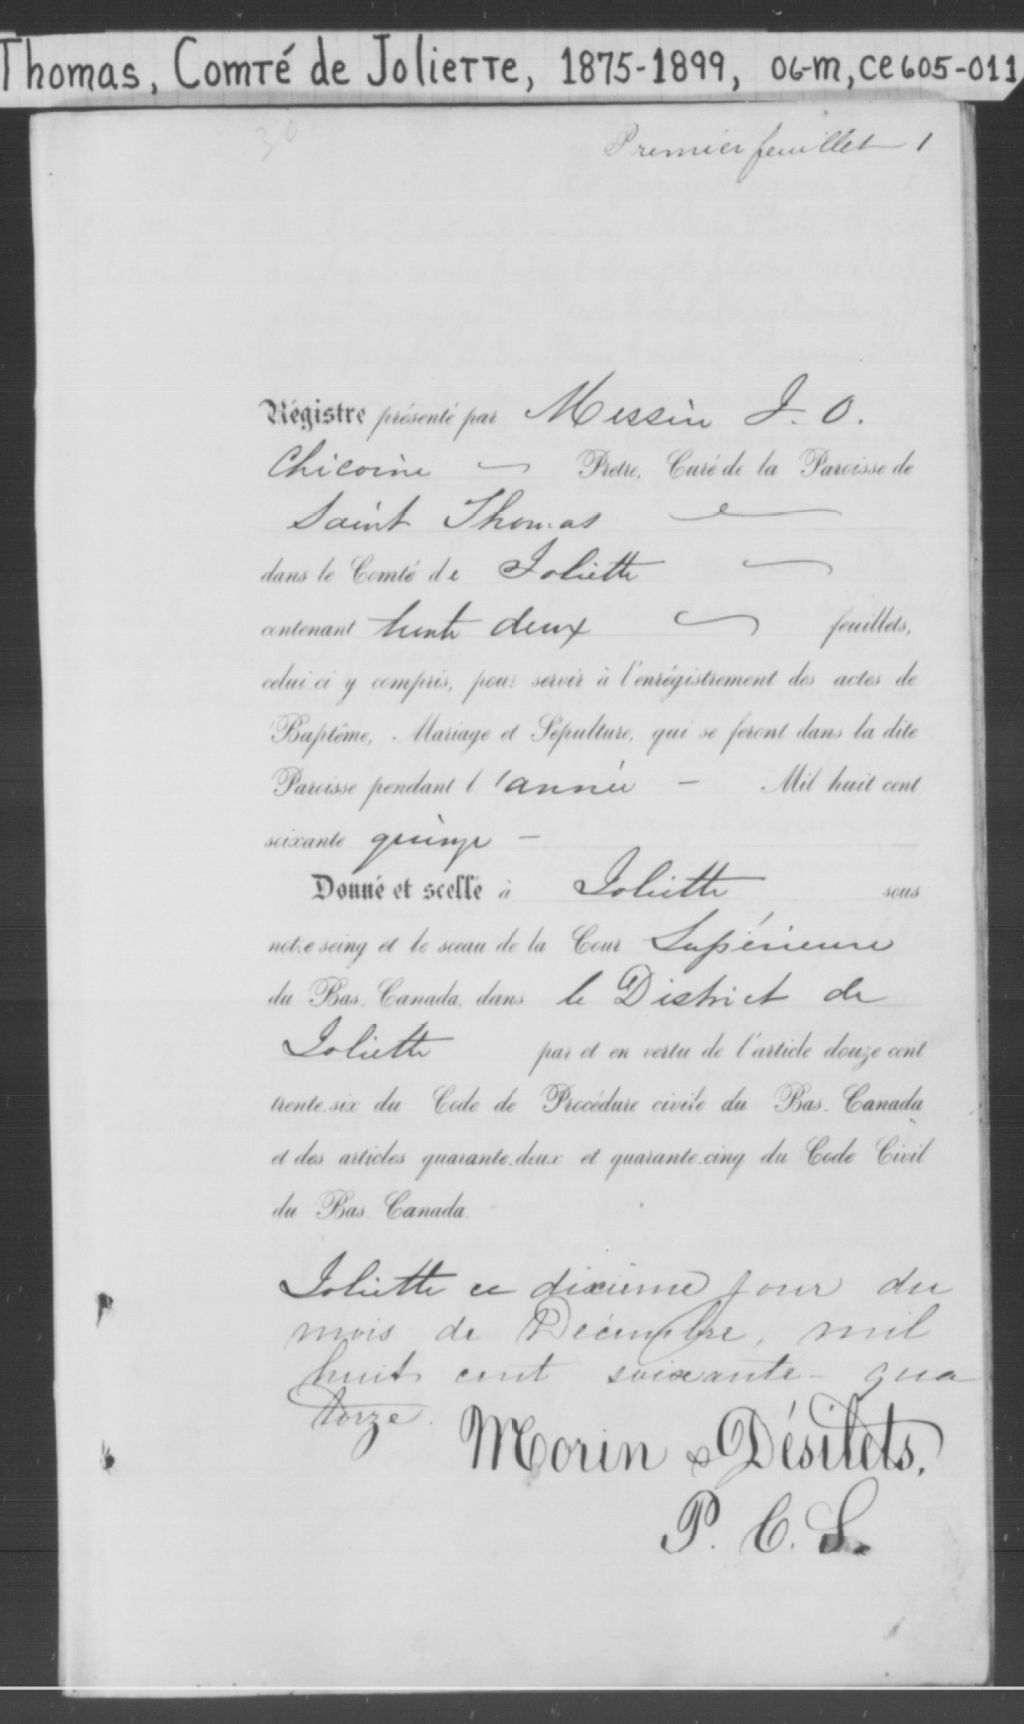 Thomas, Comté de Joliette, 1875-1899, 06-M, CE605-011
30
Premier feuillet 1
Régistre présenté par Messire J. O.
Chicoine Pretre, Curé de la Paroisse de
Saint Thomas
dans le Comté de Joliette
contenant trente deux feuillets,
celui-ci y compris, pour servir à l'enrégistrement des actes de
Baptême, Mariage et Sépulture, qui se feront dans la dite
Paroisse pendant l'année - Mil huit cent
soixante quinze -
Donné et scellé à Joliette sous
notre seing et le sceau de la Cour Supérieure
du Bas-Canada, dans le District de
Joliette par et en vertu de l'article douze cent
trente-six du Code de Procédure civile du Bas-Canada
et des articles quarante-deux et quarante-cinq du Code Civil
du Bas-Canada.
Joliette ce dixième jour du
mois de Décembre, mil
huit cent soixante-qua
torze.
Morin & Désilets,
P. C. S.